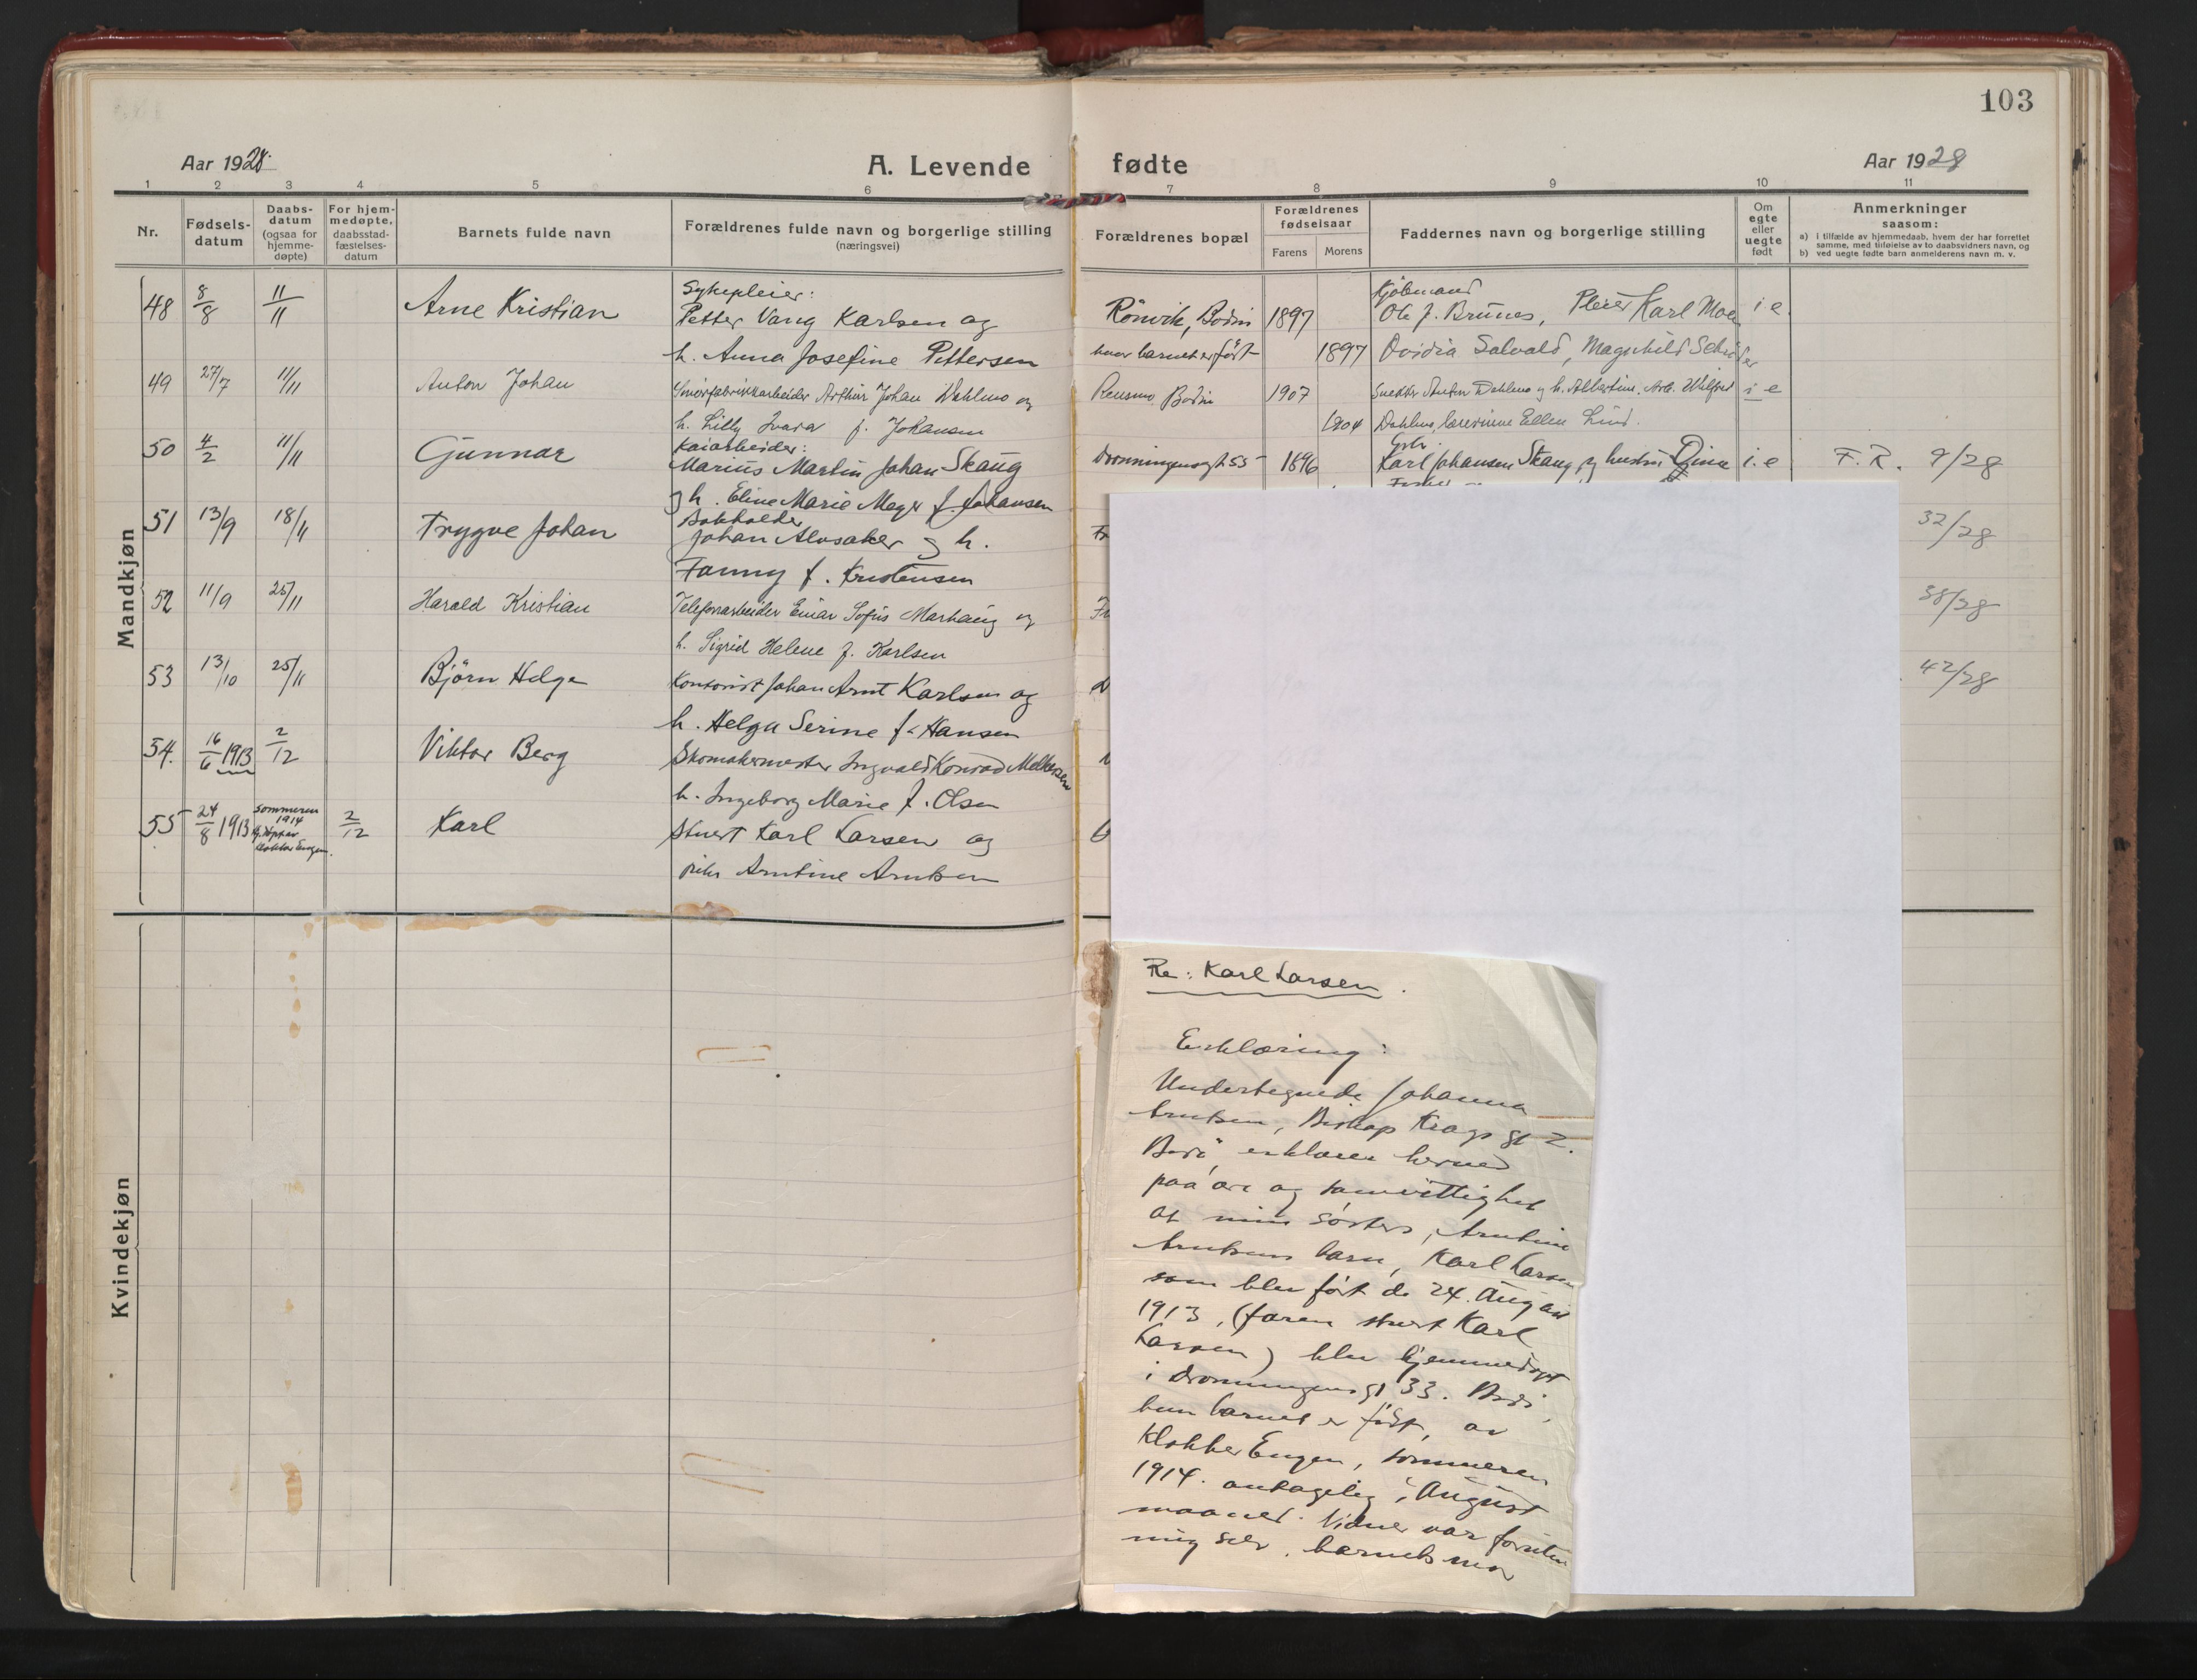 103
Aar 1928.
A. Levende fødte
Aar 1928
1 2 3 4 5 6 7 8 9 10 11
Nr.
Fødsels-
datum
Daabs-
datum
(ogsaa for
hjemme-
døpte)
For hjem-
medøpte,
daabsstad-
fæstelses-
datum
Barnets fulde navn
Forældrenes fulde navn og borgerlige stilling
(næringsvei)
Forældrenes bopæl
Forældrenes
fødselsaar
Farens Morens
Faddernes navn og borgerlige stilling
Om
egte
eller
uegte
født
Anmerkninger
saasom:
a) i tilfælde av hjemmedaab, hvem der har forrettet
samme, med tilføielse av to daabsvidners navn, og
b) ved uegte fødte barn anmelderens navn m. v.
Mandkjøn
48 8/8 11/11 Arne Kristian
Sykepleier:
Petter Vang Karlsen og
h. Anna Josefine Pettersen
Rönvik, Bodin 1897
hvor barnet er født 1897
Kjöbmand
Ole J. Brunes, Pleier Karl Moen i e.
Ovidia Salvold, Magnhild Schrøder
49 27/7 11/11 Anton Johan
Smörfabrikkarbeider Arthur Johan Dahlmo og
h. Lilly Ivara f. Johansen
Rensmo Bodin 1907
1904
Snekker Anton Dahlmo og h. Albertine. Arb. Wilfred i e
Dahlmo, lærerinne Ellen Lund.
50 4/2 11/11 Gunnar
Kaiarbeider:
Marius Martin Johan Skaug
og h. Eline Marie Meyer f. Johansen
Dronningensgt. 55 1896
Karl Johansen Skaug og hustru i.e F. R. 9/28
51 13/9 18/11 Trygve Johan
Bokholder
Johan Alvsaker og h.
Fanny f. Kristensen
32/28
52 11/9 25/11 Harald Kristian
Telefonarbeider Einar Sofus Marhaug og
h. Sigrid Helene f. Karlsen
38/28
53 13/10 25/11 Björn Helge
Kontorist Johan Arnt Karlsen og
h. Helga Serine f. Hansen
42/28
54. 16/6 1913 2/12 Viktor Berg
Skomakermester Ingvald Konrad Melkersen
h. Ingeborg Marie f. Olsen
55 24/8 1913 sommeren
1914
hj.døpt av
klokker Engen. 2/12 Karl
Stuert Karl Larsen og
pike Arntine Arntsen
Kvindekjøn
Re: Karl Larsen.
Erklæring:
Undertegnede Johanna
Arntsen, Biskop Krogs gt 2.
Bodö erklærer herved
paa ære og samvittighet
at min sösters, Arntine
Arntsens barn, Karl Larsen
som blev født d. 24. August
1913, (faren stuert Karl
Larsen) blev hjemmedøpt
i Dronningens gt 33. Bodö,
hvor barnet er født, av
Klokker Engen, sommeren
1914. antagelig i August
maaned. Vidner var foruten
mig selv, barnets mor